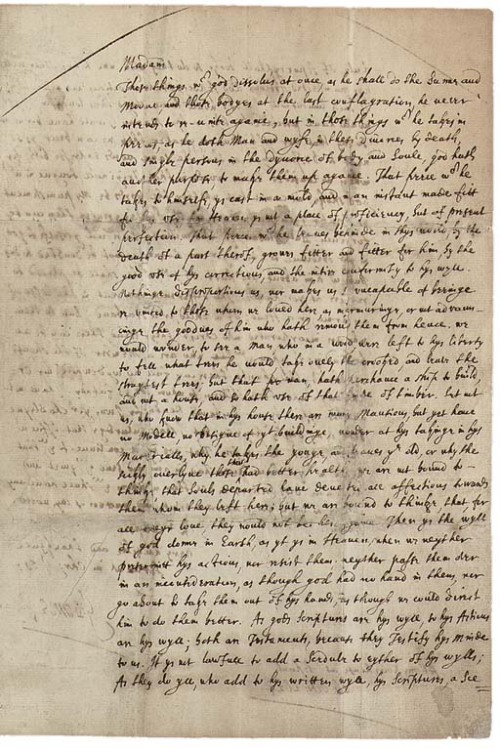 Madam
Those things wch god dissolues at once, as he shall do the Sunne and
Moone and those bodyes at the last conflagration, he neuer
intends to re-unite againe; but in those things wch he takes in
peeces, as he doth Man and wyfe, in these diuorces by death,
and single persons in the diuorce of body and Soule, god hath
another purpose to make them up againe. That peece wch he
takes to himselfe, ys cast in a mold, and in an instant made fitt
for hys vse; for Heauen ys not a place of proficiency, but of present
perfection. That peece wch he leaues behinde in thys world, by the
death of a part therof, growes fitter and fitter for him, by the
good vse of hys corrections, and the intire conformity to hys wyll.
Nothinge disproportions us, nor makes us so vncapable of beeinge
re-united to those whom we loued here, as murmuringe, or not aduan-
cinge the goodnes of him who hath remoued them from hence. we
would wonder, to see a Man, who in a wood were left to hys liberty
to fell what trees he would, take onely the crooked, and leaue the
straytest trees; but that Man, hath perchance a ship to build,
and not a house, and so hath vse of that kinde of timber. Let not
us, who know that in hys house there are many Mansions, but yet haue
no Modell, no designe of yt buildinge, wonder at hys takinge in hys
Materialls, why he takes the yonge and leaues ye old, or why the
sickly ouerliue those that had better health. we are not bound to
thinke that Souls departed haue deuested all affections towards
them whom they left here; but we are bound to thinke that, for
all theyr loue they would not be here againe. Then ys the wyll
of god donne in Earth, as yt ys in Heauen, when we neyther
pretermitt hys actions, nor resist them; neyther passe them ouer
in an inconsideration, as though god had no hand in them, nor
go about to take them out of hys hands, as though we could direct
him to do them better. As gods Scriptures are hys wyll, so hys Actions
are hys wyll; both are Testaments, because they Testify hys Minde
to us. It ys not lawfull to add a Scedule to eyther of hys wylls;
As they do yll, who add to hys written wyll, hys Scriptures, a Sce